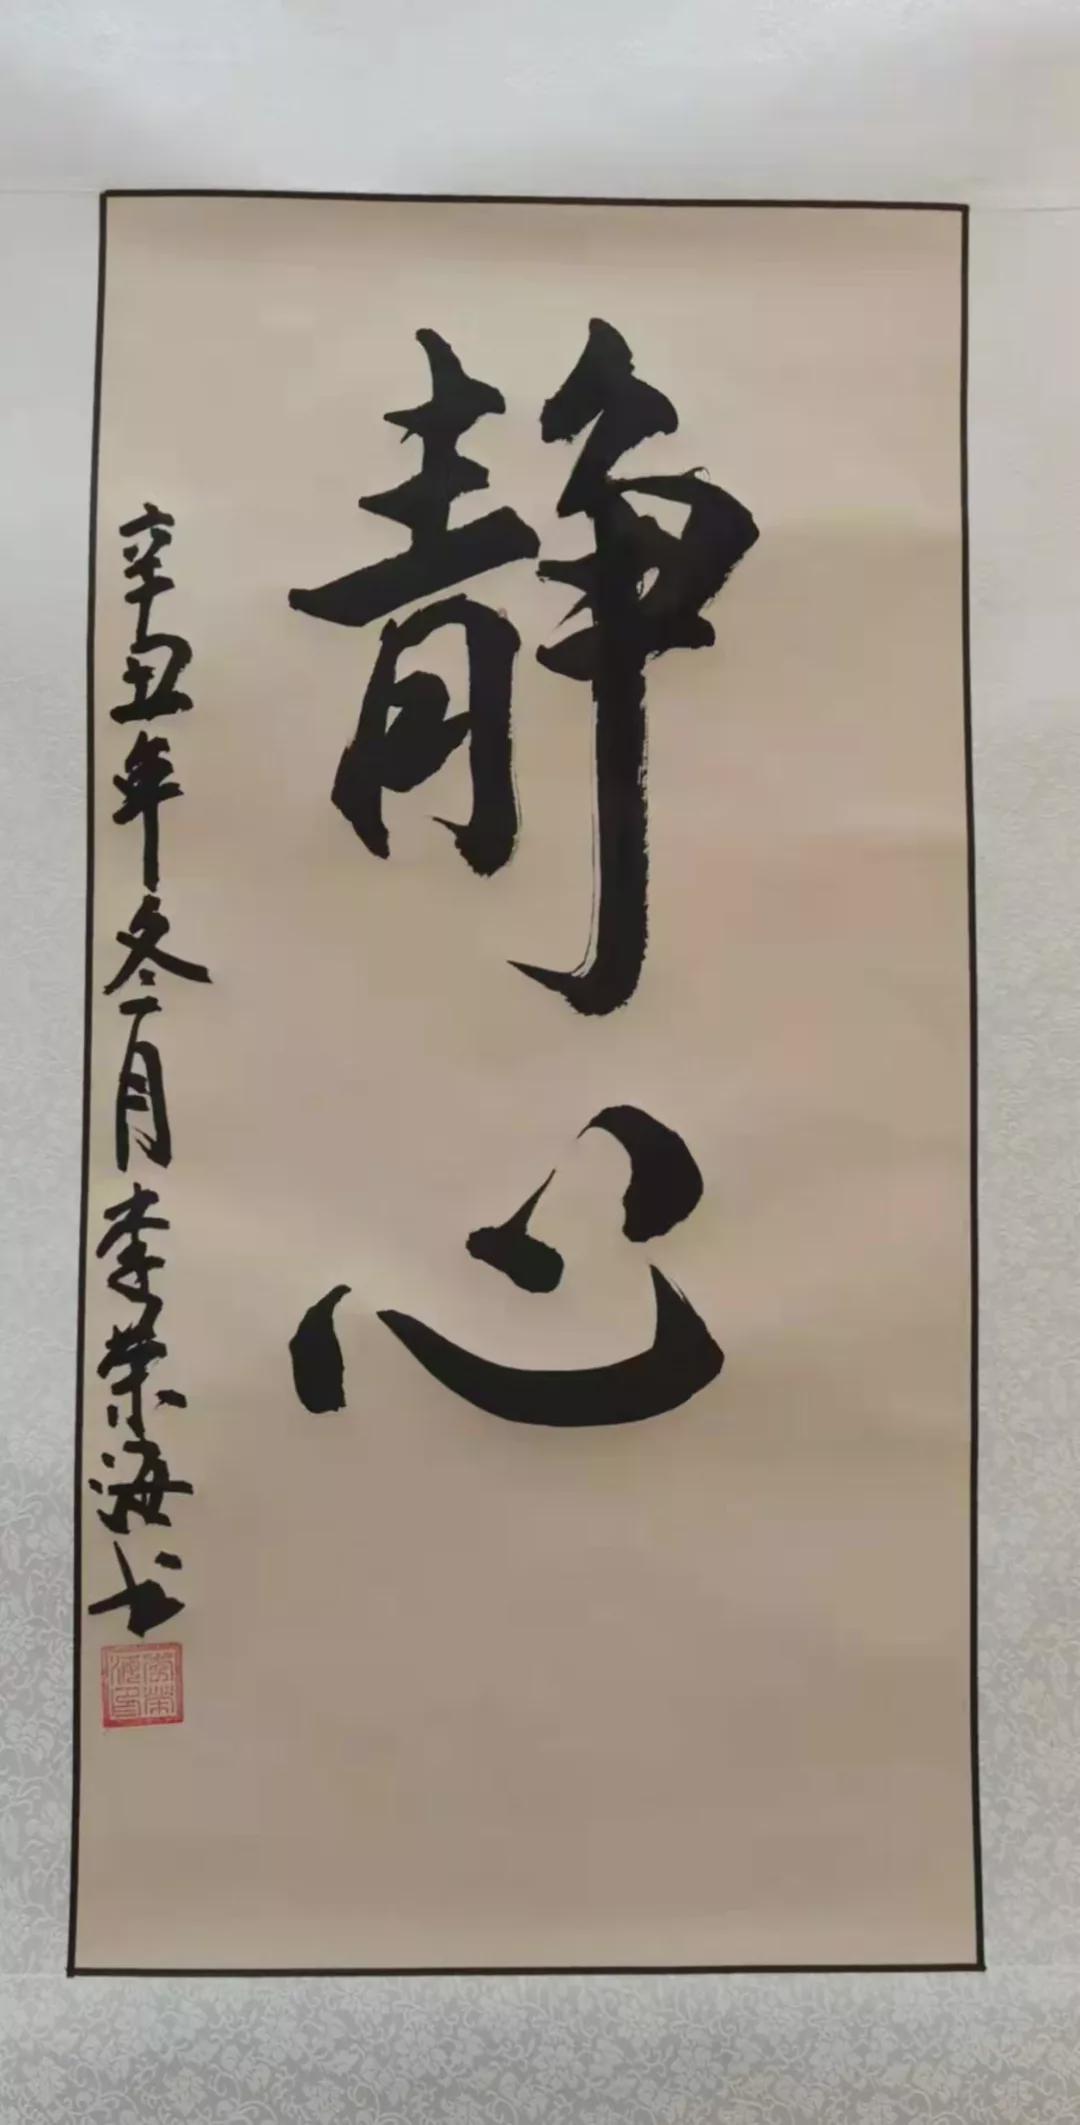 静心
辛丑年冬月李荣海书